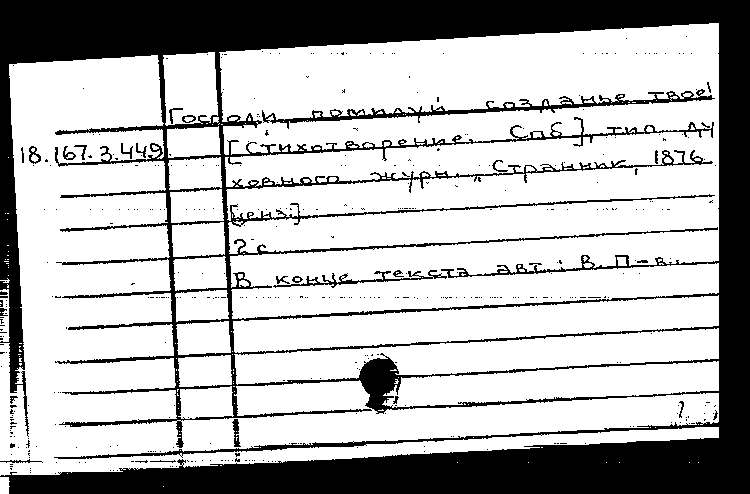 Господи, помилуй созданье твое!
18.167.3.449 [Стихотворение. Спб], тип. ду
ховного журн. „Странник, 1876
[ценз.]
2 с
В конце текста авт.: В. П-в.